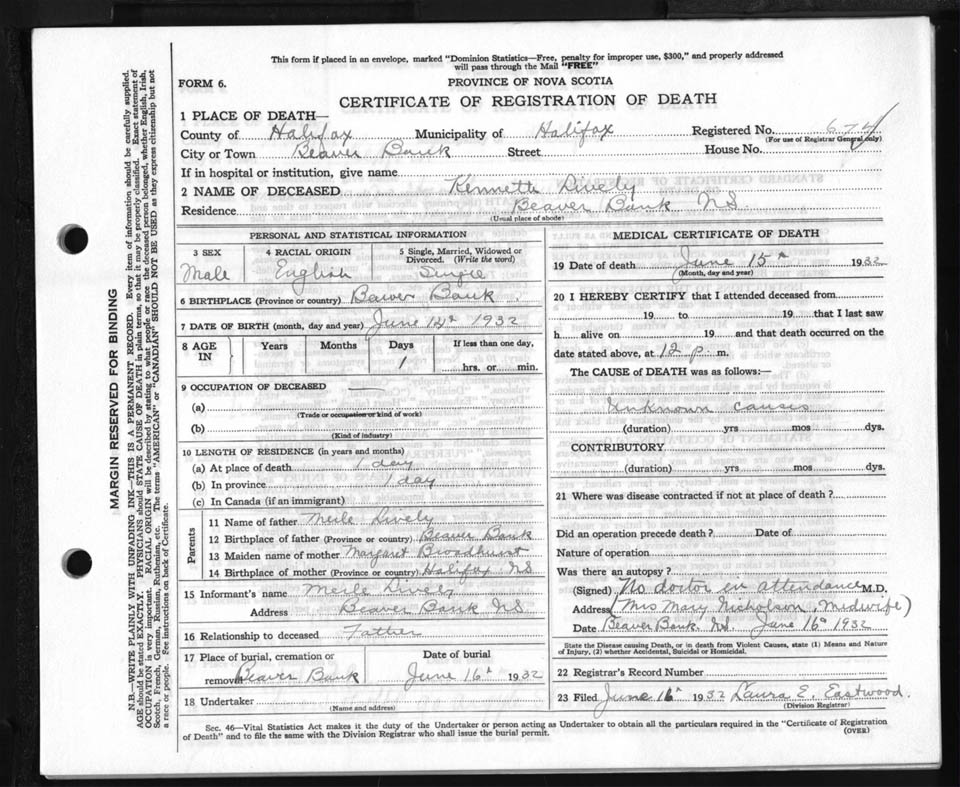 This form if placed in an envelope, marked "Dominion Statistics—Free, penalty for improper use, $300," and properly addressed
will pass through the Mail "FREE"
FORM 6.
PROVINCE OF NOVA SCOTIA
CERTIFICATE OF REGISTRATION OF DEATH
1 PLACE OF DEATH—
County of Halifax Municipality of Halifax Registered No. 674
(For use of Registrar General only)
City or Town Beaver Bank Street House No.
If in hospital or institution, give name
2 NAME OF DECEASED Kenneth Lively
Residence Beaver Bank NS
(Usual place of abode)
PERSONAL AND STATISTICAL INFORMATION
3 SEX
Male
4 RACIAL ORIGIN
English
5 Single, Married, Widowed or
Divorced. (Write the word)
Single
6 BIRTHPLACE (Province or country) Beaver Bank
7 DATE OF BIRTH (month, day and year) June 14th 1932
8 AGE IN Years Months Days If less than one day,
1 hrs. or min.
9 OCCUPATION OF DECEASED —
(a)
(Trade or occupation or kind of work)
(b)
(Kind of industry)
10 LENGTH OF RESIDENCE (in years and months)
(a) At place of death 1 day
(b) In province 1 day
(c) In Canada (if an immigrant)
Parents
11 Name of father Merle Lively
12 Birthplace of father (Province or country) Beaver Bank
13 Maiden name of mother Margaret Broadhurst
14 Birthplace of mother (Province or country) Halifax NS
15 Informant's name Merle Lively
Address Beaver Bank NS
16 Relationship to deceased Father
17 Place of burial, cremation or
removal Beaver Bank
Date of burial
June 16th 1932
18 Undertaker
(Name and address)
MEDICAL CERTIFICATE OF DEATH
19 Date of death June 15th 1932
(Month, day and year)
20 I HEREBY CERTIFY that I attended deceased from
19 to 19 that I last saw
h alive on 19 and that death occurred on the
date stated above, at 12 p. m.
The CAUSE of DEATH was as follows:—
Unknown causes
(duration) yrs mos dys.
CONTRIBUTORY
(duration) yrs mos dys.
21 Where was disease contracted if not at place of death?
Did an operation precede death? Date of
Nature of operation
Was there an autopsy?
(Signed) No doctor in attendance M.D.
Address (Mrs Mary Nicholson, Midwife)
Date Beaver Bank. NS. June 16th 1932
State the Disease causing Death, or in death from Violent Causes, state (1) Means and Nature
of Injury, (2) whether Accidental, Suicidal or Homicidal.
22 Registrar's Record Number
23 Filed June 16th 1932 Laura E. Eastwood.
(Division Registrar)
Sec. 46—Vital Statistics Act makes it the duty of the Undertaker or person acting as Undertaker to obtain all the particulars required in the "Certificate of Registration
of Death" and to file the same with the Division Registrar who shall issue the burial permit.
(OVER)
MARGIN RESERVED FOR BINDING
N.B.—WRITE PLAINLY, WITH UNFADING INK—THIS IS A PERMANENT RECORD. Every item of information should be carefully supplied.
AGE should be stated EXACTLY. PHYSICIANS should STATE CAUSE OF DEATH in plain terms, so that it may be properly classified. Exact statement of
OCCUPATION is very important. RACIAL ORIGIN will be described by stating to what people or race the deceased person belonged, whether English, Irish,
Scotch, French, German, Russian, Ruthenian, etc. The terms "AMERICAN" or "CANADIAN" SHOULD NOT BE USED as they express citizenship but not
a race or people. See instructions on back of Certificate.